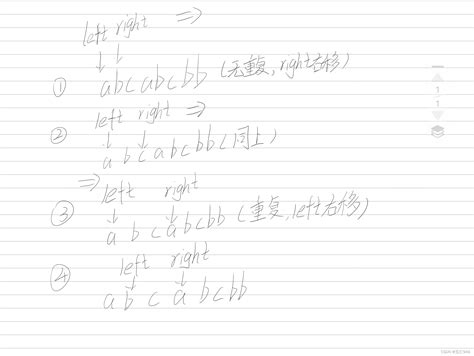 left right ⇒
① abcabcbb (无重复,right右移)
left right ⇒
② abcabcbb (同上)
⇒ left right
③ abcabcbb (重复,left右移)
left right
④ abcabcbb
1
1